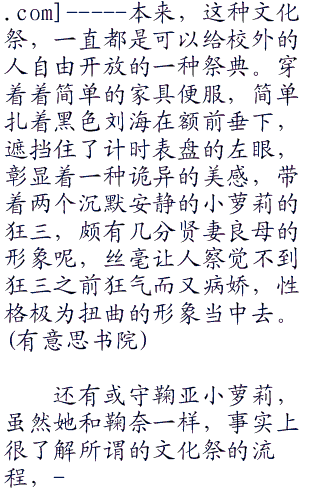 .com]-----本来，这种文化
祭，一直都是可以给校外的
人自由开放的一种祭典。穿
着着简单的家具便服，简单
扎着黑色刘海在额前垂下，
遮挡住了计时表盘的左眼，
彰显着一种诡异的美感，带
着两个沉默安静的小萝莉的
狂三，颇有几分贤妻良母的
形象呢，丝毫让人察觉不到
狂三之前狂气而又病娇，性
格极为扭曲的形象当中去。
(有意思书院)
还有或守鞠亚小萝莉，
虽然她和鞠奈一样，事实上
很了解所谓的文化祭的流
程，-